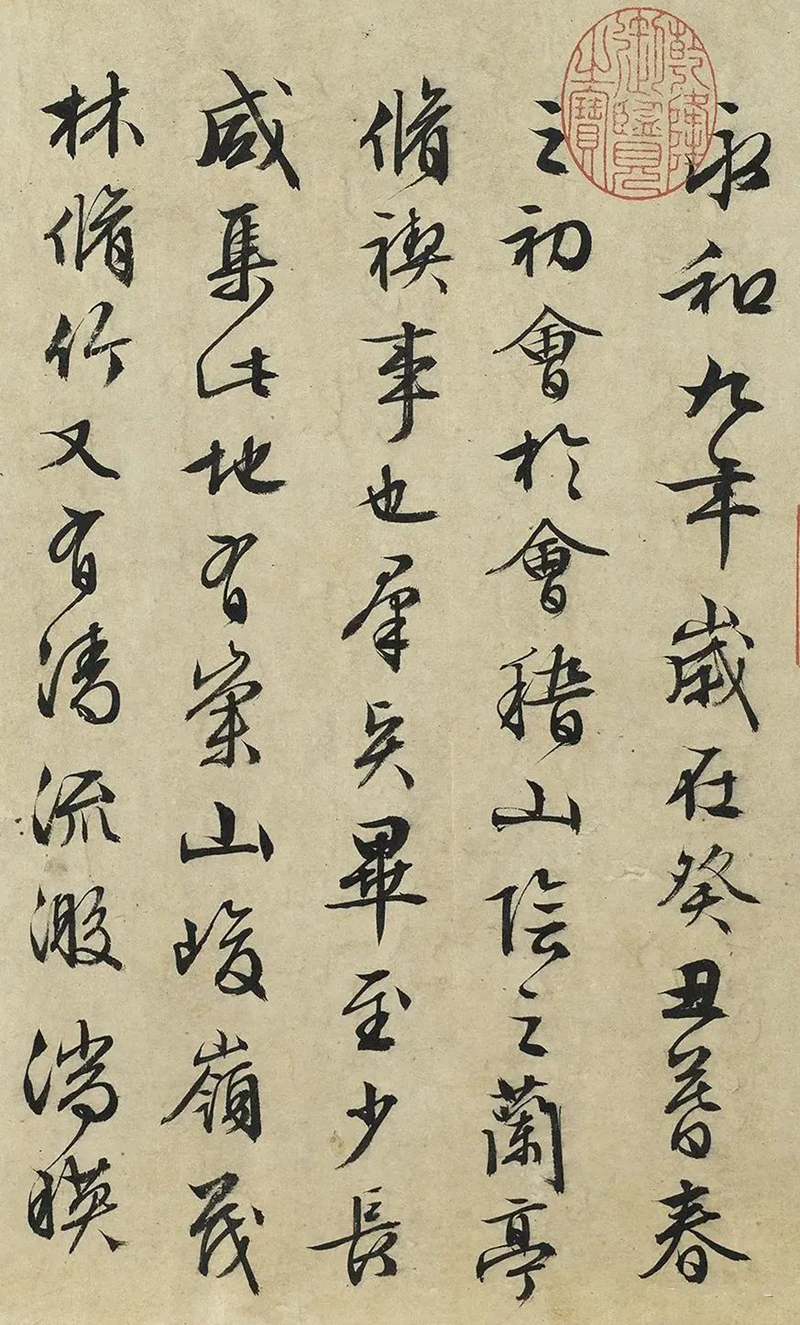 乾隆
御覽
之寶
永和九年歲在癸丑暮春
之初會於會稽山陰之蘭亭
脩禊事也羣賢畢至少長
咸集此地有崇山峻嶺茂
林脩竹又有清流激湍暎